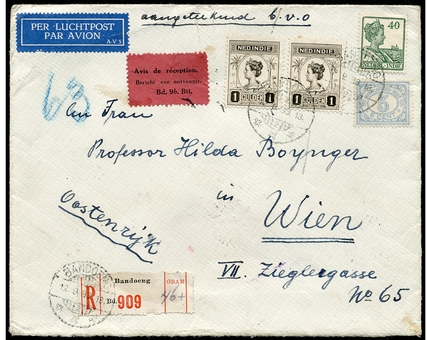 PER LUCHTPOST
PAR AVION
A.V.S
aangetekend b.v.o
Avis de réception.
Bericht van ontvangst.
Bd. 9b. Btj.
NED INDIE
1 GULDEN 1
NED INDIE
1 GULDEN 1
40
NEDERL. INDIE
5
CENT
63
An Frau
Professor Hilda Boynger
in
Oostenrijk
Wien
VII. Zieglergasse
No 65
BANDOENG
R
Bandoeng
Bd.
909
GRAM